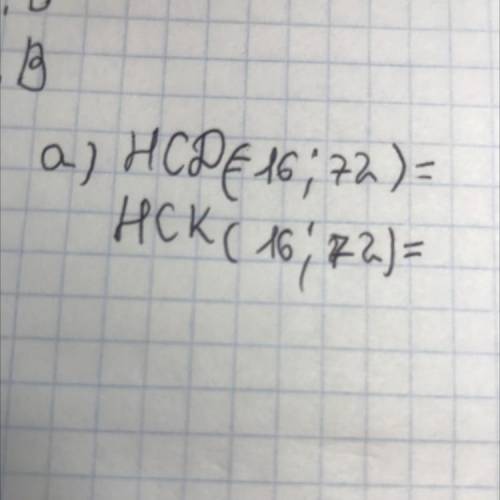 B
a) НСД(16; 72) =
НСК(16; 72) =